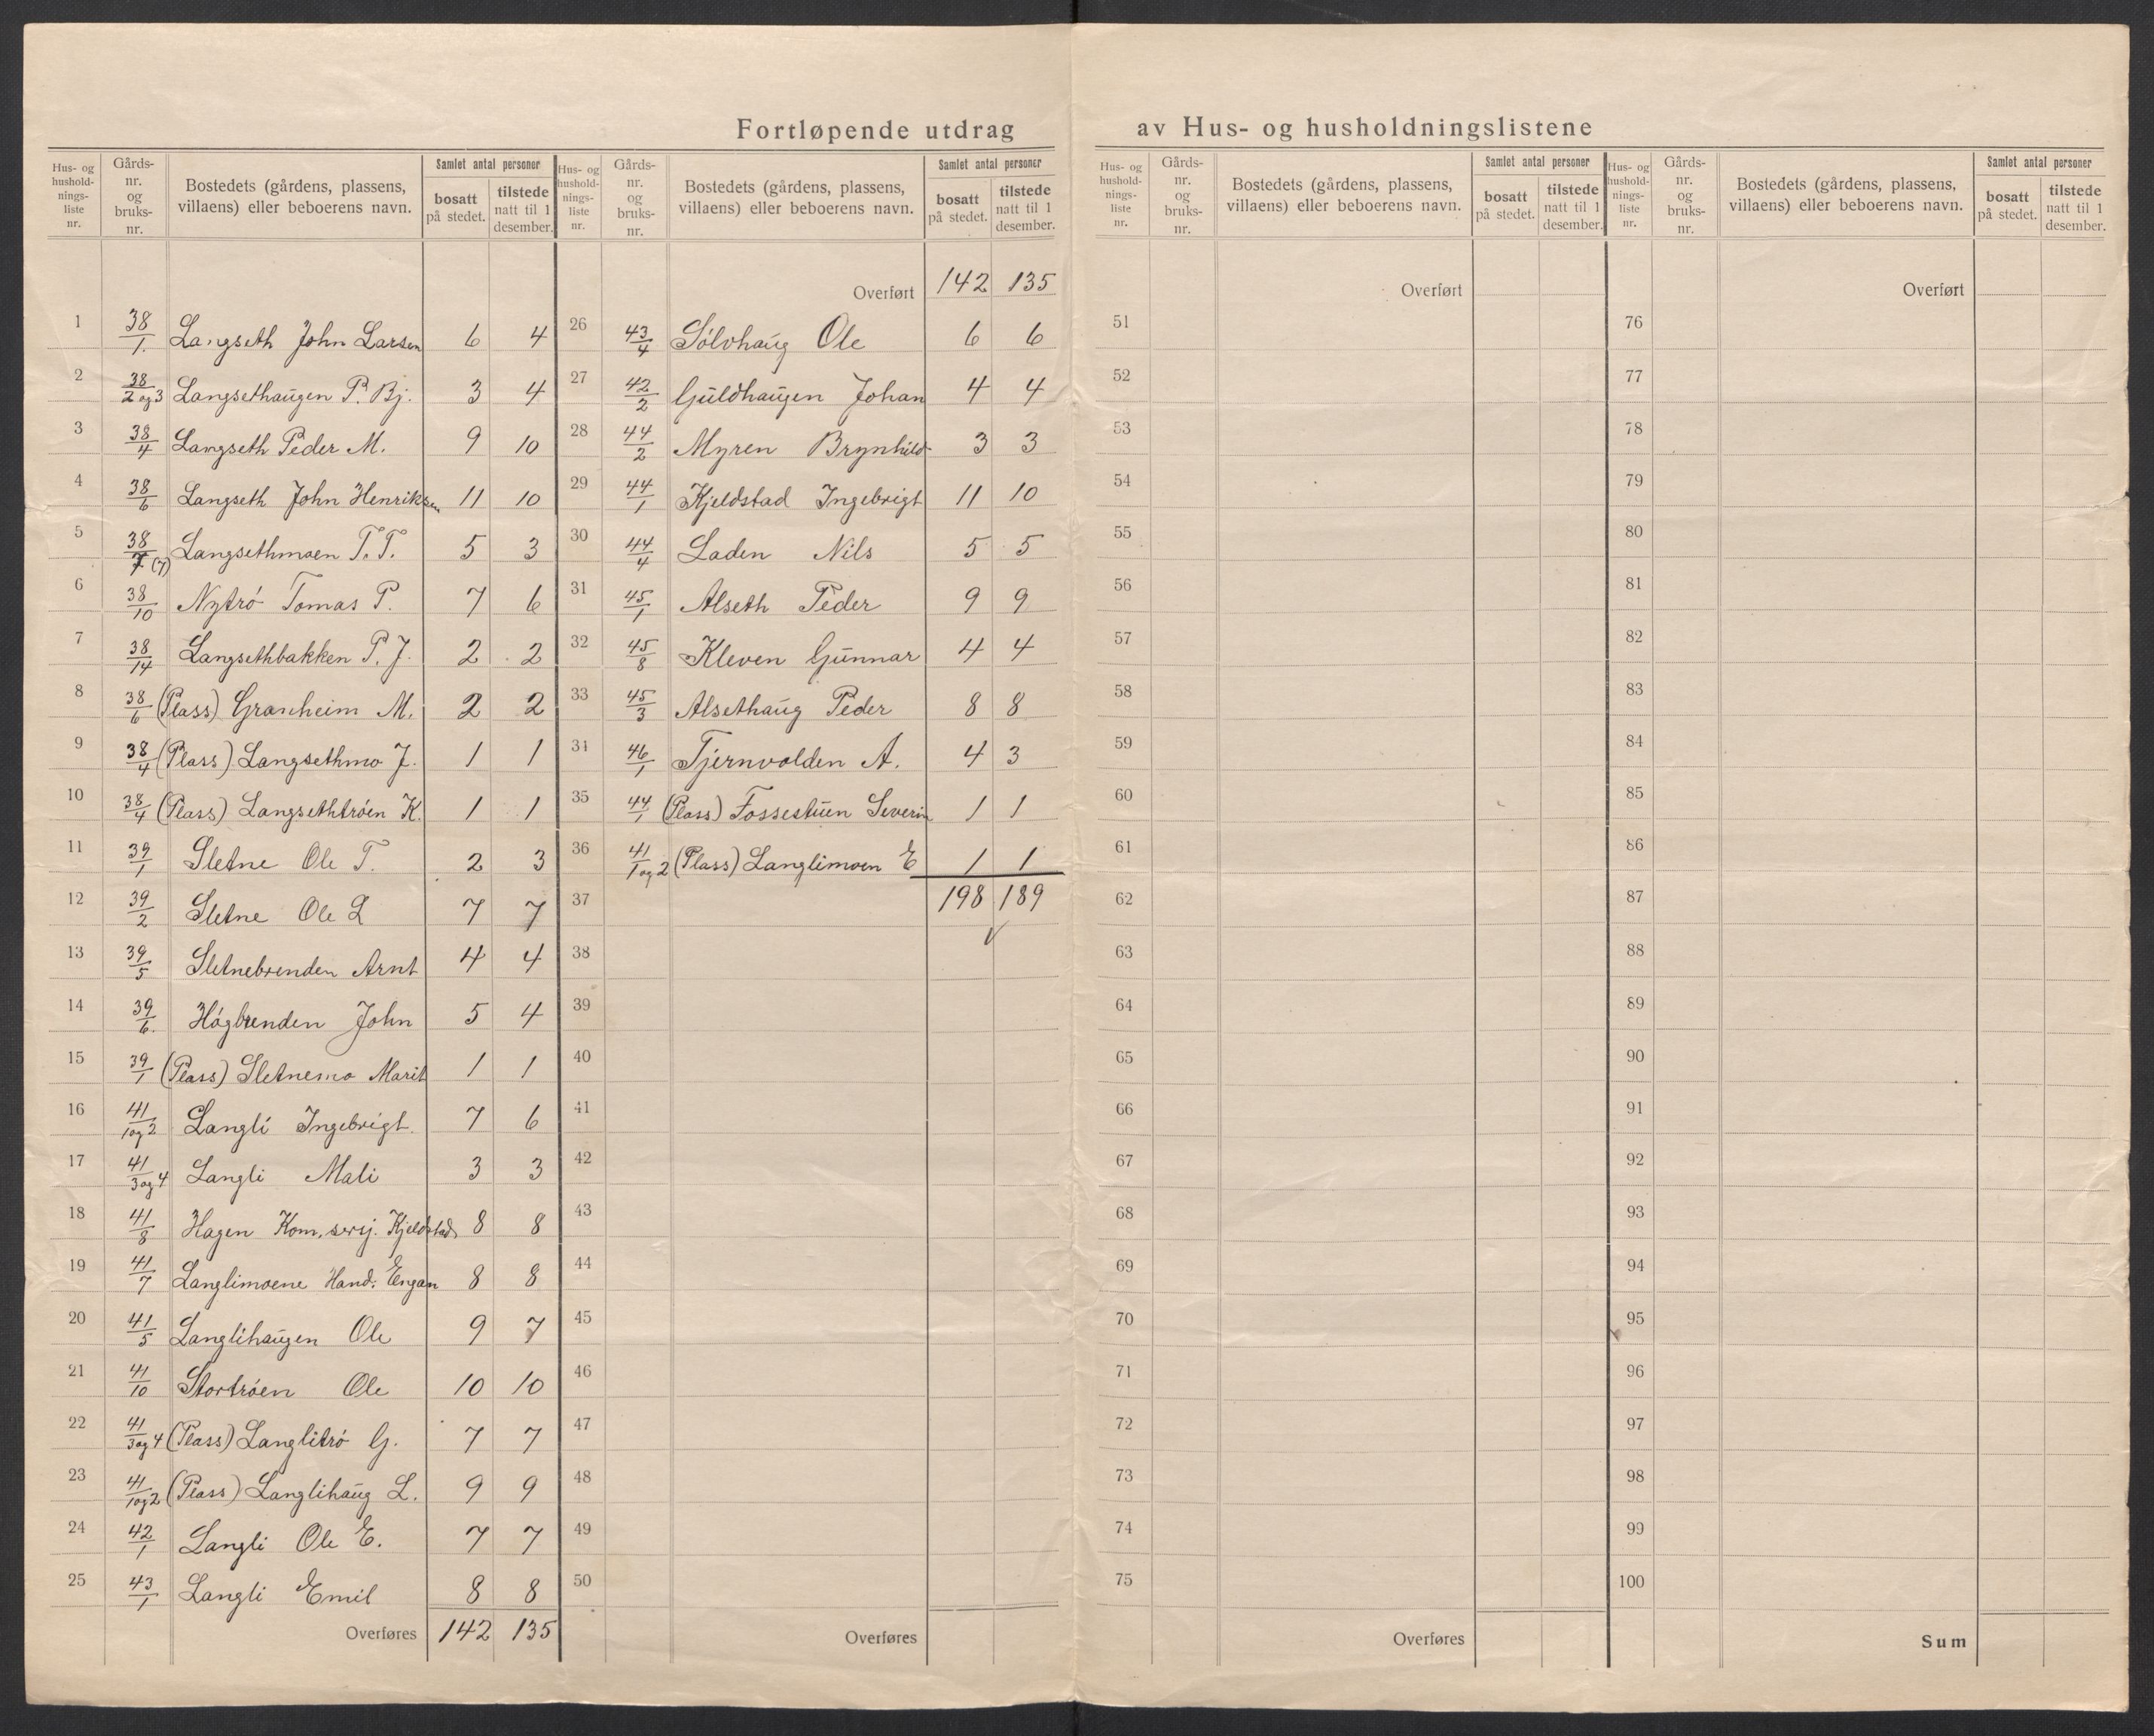 Fortløpende utdrag av Hus- og husholdningslistene
Hus- og hushold-nings-liste nr. Gårds-nr. og bruks-nr. Bostedets (gårdens, plassens, villaens) eller beboerens navn. Samlet antal personer bosatt på stedet. tilstede natt til 1 desember.
1 38/1. Langseth John Larsen 6 4
2 38/2 og 3 Langsethaugen P. Bj. 3 4
3 38/4 Langseth Peder M. 9 10
4 38/6 Langseth John Henriksen 11 10
5 38/7 (7) Langsethmoen T. T. 5 3
6 38/10 Nytrö Tomas P. 7 6
7 38/14 Langsethbakken P. J. 2 2
8 38/6 (Plass) Granheim M. 2 2
9 38/4 (Plass) Langsethmo J. 1 1
10 38/4 (Plass) Langsethtröen K. 1 1
11 39/1 Sletne Ole T. 2 3
12 39/2 Sletne Ole L 7 7
13 39/5 Sletnebrenden Arnt 4 4
14 39/6. Högbrenden John 5 4
15 39/1 (Plass) Sletnemo Marit 1 1
16 41/1 og 2 Langli Ingebrigt. 7 6
17 41/3 og 4 Langli Mali 3 3
18 41/8 Hagen Kom. sersj. Kjeldstad 8 8
19 41/7 Langlimoene Hand: Engan 8 8
20 41/5 Langlihaugen Ole 9 7
21 41/10 Stortröen Ole 10 10
22 41/3 og 4 (Plass) Langlitrö G. 7 7
23 41/1 og 2 (Plass) Langlihaug L. 9 9
24 42/1 Langli Ole E. 7 7
25 43/1 Langli Emil 8 8
Overføres 142 135
Hus- og hushold-nings-liste nr. Gårds-nr. og bruks-nr. Bostedets (gårdens, plassens, villaens) eller beboerens navn. Samlet antal personer bosatt på stedet. tilstede natt til 1 desember.
Overført 142 135
26 43/4 Sölvhaug Ole 6 6
27 42/2 Guldhaugen Johan 4 4
28 44/2 Myren Brynhild 3 3
29 44/1 Kjeldstad Ingebrigt 11 10
30 44/4 Laden Nils 5 5
31 45/1 Alseth Peder 9 9
32 45/8 Kleven Gunnar 4 4
33 45/3 Alsethaug Peder 8 8
34 46/1 Tjernvolden A. 4 3
35 44/1 (Plass) Fossestuen Severin 1 1
36 41/1 og 2 (Plass) Langlimoen E 1 1
37 198 189
38
39
40
41
42
43
44
45
46
47
48
49
50
Overføres
Hus- og hushold-nings-liste nr. Gårds-nr. og bruks-nr. Bostedets (gårdens, plassens, villaens) eller beboerens navn. Samlet antal personer bosatt på stedet. tilstede natt til 1 desember.
Overført
51
52
53
54
55
56
57
58
59
60
61
62
63
64
65
66
67
68
69
70
71
72
73
74
75
Overføres
Hus- og hushold-nings-liste nr. Gårds-nr. og bruks-nr. Bostedets (gårdens, plassens, villaens) eller beboerens navn. Samlet antal personer bosatt på stedet. tilstede natt til 1 desember.
Overført
76
77
78
79
80
81
82
83
84
85
86
87
88
89
90
91
92
93
94
95
96
97
98
99
100
Sum